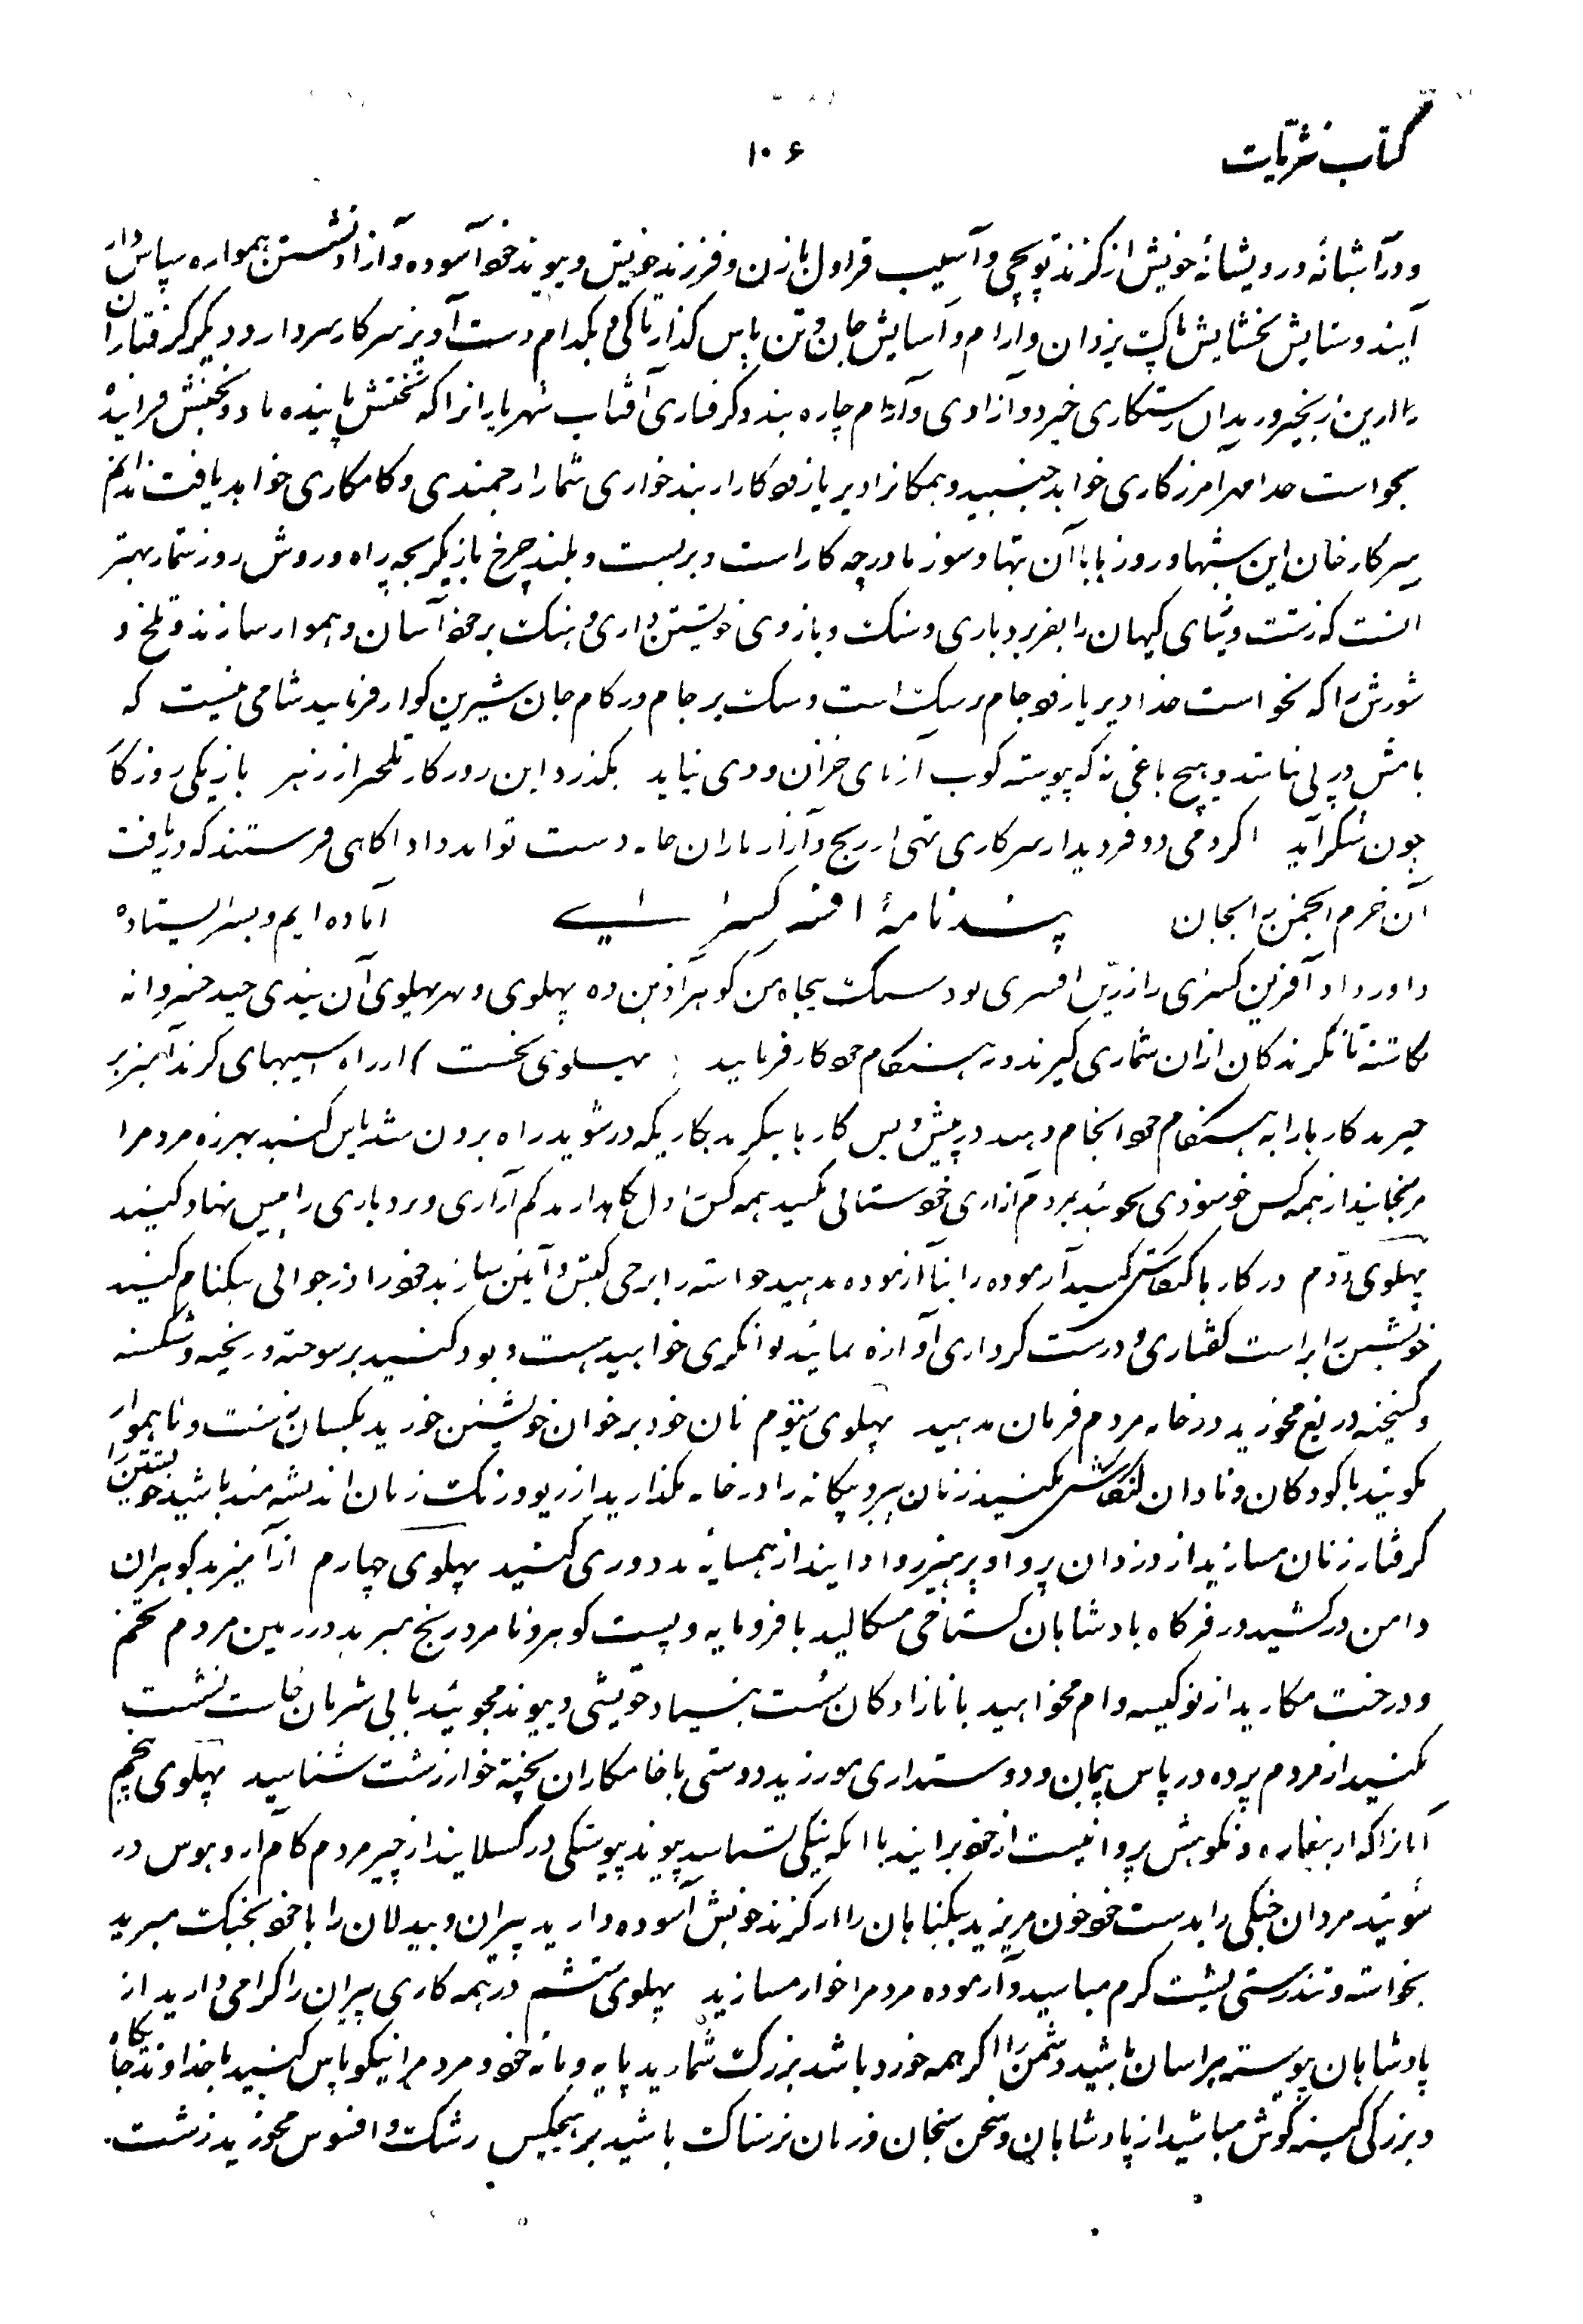 کتاب نثریات
۱۰۶
و در آشیانه و درویشانه خویش از گزند توپچی و آسیب قراول با زن و فرزند خویش و پیوند خود آسوده و آزاد نشستن همواره سپاس دار
آیند و ستایش بخشایش پاک یزدان و آرام و آسایش جان و تن پاس گذار تا کی و بکدام دست آویز سرکار سردار و دیگر گرفتاران
را از این زنجیر و بندان رستگاری خیزد و آزادی و آرام چاره بند و گرفتاری آفتاب شهریاران را که تختش پاینده باد و بختش فزاینده
بخواست خدا مهر آمرزگاری خواهد جنبید و همگان را دیر یا زود کار از بند خواری شما را رجمندی و کامکاری خواهد یافت ندانم
سرکار خان این شبها و روزها با آن تبها و سوزها در چه کار است و بر پست و بلند چرخ بازیگر بچه راه و روش روز شمار بهتر
آنست که زشت و زیبای کیهان را بفر بردباری و سنگ و بازوی خویشتن داری و هنگ بر خود آسان و هموار سازند و تلخ و
شورش را که بخواست خدا دیر یا زود جام بر سنگ است و سنگ بر جام در کام جان شیرین گوار فرمایید شامی نیست که
بامش در پی نباشد و هیچ باغی نه که پیوسته کوب آزمای خزان و دی نیاید بگذرد این روزگار تلختر از زهر بار دیگر روزگار
چون شکر آید اگر دمی دو فر دیدار سرکاری تهی از رنج و آزار یاران خانه دست تواند داد آگاهی فرستند که دریافت
آن خرم انجمن را بجان پندنامهٔ افسر کسرائی آماده ایم و بسر ایستاده
داور داد آفرین کسری را زرین افسری بود سنگ پنجاه من گوهر آذین ده پهلوی و هر پهلوی آن پندی چند خسروانه
نگاشته تا نگرندگان از آن شماری گیرند و به هنگام خود کار فرمایید پهلوی نخست از راه آسیبهای گزند آمیز بر
خیزید کارها را به هنگام خود انجام دهید در پیش و پس کارها بنگرید بکاریکه در شوید راه برون شد پاس کنید بهرزه مردم را
مرنجانید از همه کس خوشنودی بجوئید بمردم آزاری خودستائی مکنید همه کس را دل نگاهدارید کم آزاری و بردباری را پیش نهاد کنید
پهلوی دوم در کارها کنکاش کنید آزموده را بناآزموده ندهید خواسته را برخی کیش و آئین سازید خود را در جوانی نیکنام کنید
خویشتن را براست گفتاری و درست کرداری آوازه نمائید توانگری خواهید هست و بود کنید بر سوخته و ریخته و شکسته
و گسیخته دریغ مخورید در خانه مردم فرمان مدهید پهلوی سیّوم نان خود بر خوان خویشتن خورید بکسان زشت و ناهموار
مگوئید با کودکان و نادان کنکاش مکنید زنان پیر و بیگانه را در خانه مگذارید از ریو و رنگ زنان اندیشه مند باشید خویشتن را
گرفتار زنان مسازید از دزدان پروا و پرهیز روا دارید از همسایهٔ بد دوری کنید پهلوی چهارم از آمیزش بد گوهران
دامن درکشید در فرگاه پادشاهان گستاخی مسگالید با فرومایه و پست گوهر و نامرد رنج مبرید در زمین مردم تخم
و درخت مکارید از نوکیسه وام مخواهید با نازادگان سست بنیاد خویشی و پیوند مجوئید با بی شرمان خاست نشست
مکنید از مردم پرده در پاس پیمان و دوستداری مورزید دوستی با خامکاران پخته خوار زشت شناسید پهلوی پنجم
آنانرا که از بیغاره و نکوهش پروا نیست از خود برانید با آنکه نیکی نشناسد پیوند پیوستگی درگسلانید از چیز مردم کام آز و هوس در
شوئید مردان جنگی را بدست خود خون مریزید بیگناهان را از گزند خویش آسوده دارید پیران و بیدلان را با خود بجنگ مبرید
بخواسته و تندرستی پشت گرم مباشید و آزموده مردم را خوار مسازید پهلوی ششم در همه کاری پیران را گرامی دارید از
پادشاهان پیوسته هراسان باشید دشمن را اگر همه خورد باشد بزرگ شمارید پایه و مایه خود و مردم را نیکو پاس کنید با خداوند جاه
و بزرگی کینه کوش مباشید از پادشاهان و سخن سنجان و زنان ترسناک باشید بر هیچکس رشک و افسوس مخورید زشت